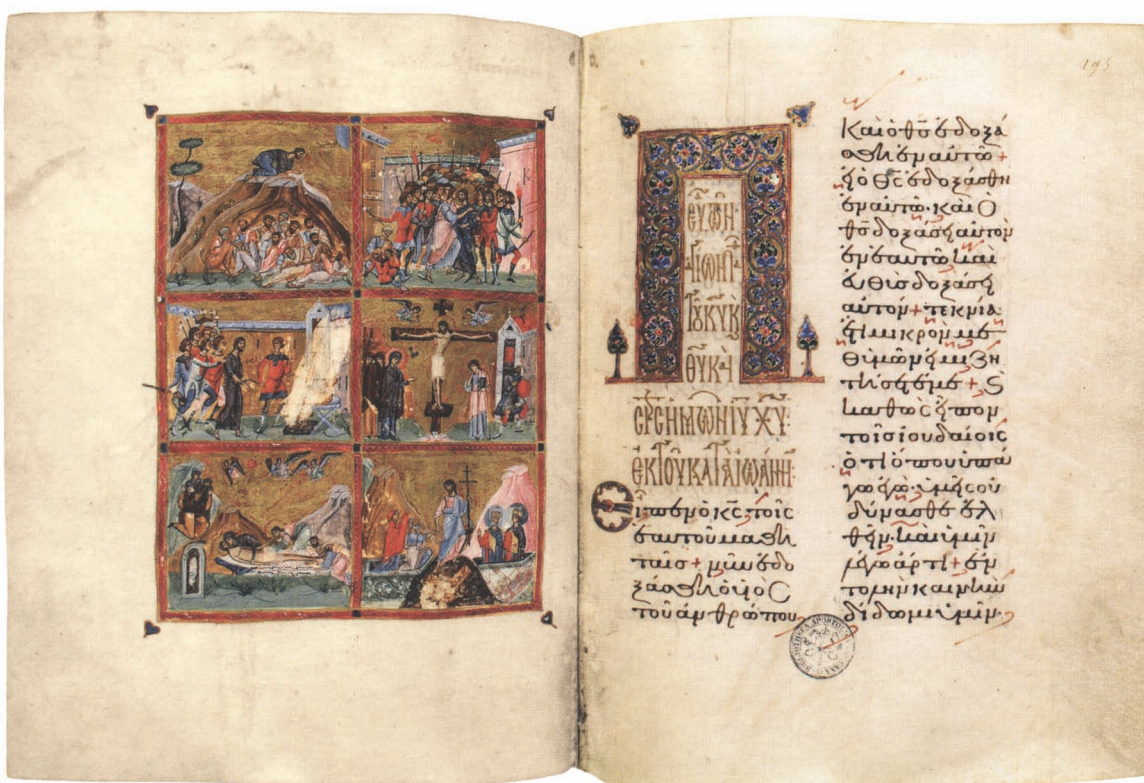 195
ἐκ τοῦ κατὰ Ἰωάνν
Εἶπεν ὁ κς τοῖς
ἑαυτοῦ μαθη
ταῖς + νῦν ἐδο
ξάσθη ὁ υἱὸς
τοῦ ἀνθρώπου
Καὶ ὁ θς ἐδοξά
σθη ἐν αὐτῷ +
εἰ ὁ θς ἐδοξάσθη
ἐν αὐτῷ · καὶ ὁ
θς δοξάσει αὐτὸν
ἐν ἑαυτῷ καὶ
εὐθὺς δοξάσει
αὐτόν + τεκνία
ἔτι μικρὸν με
θ ὑμῶν εἰμι ζη
τήσετέ με + ϗ
καθὼς εἶπον
τοῖς ἰουδαίοις
ὅτι ὅπου ὑπά
γω ἐγώ · ὑμεῖς οὐ
δύνασθε ἐλ
θεῖν · καὶ ὑμῖν
λέγω ἄρτι + ἐν
τολὴν καινὴν
δίδωμι ὑμῖν ·